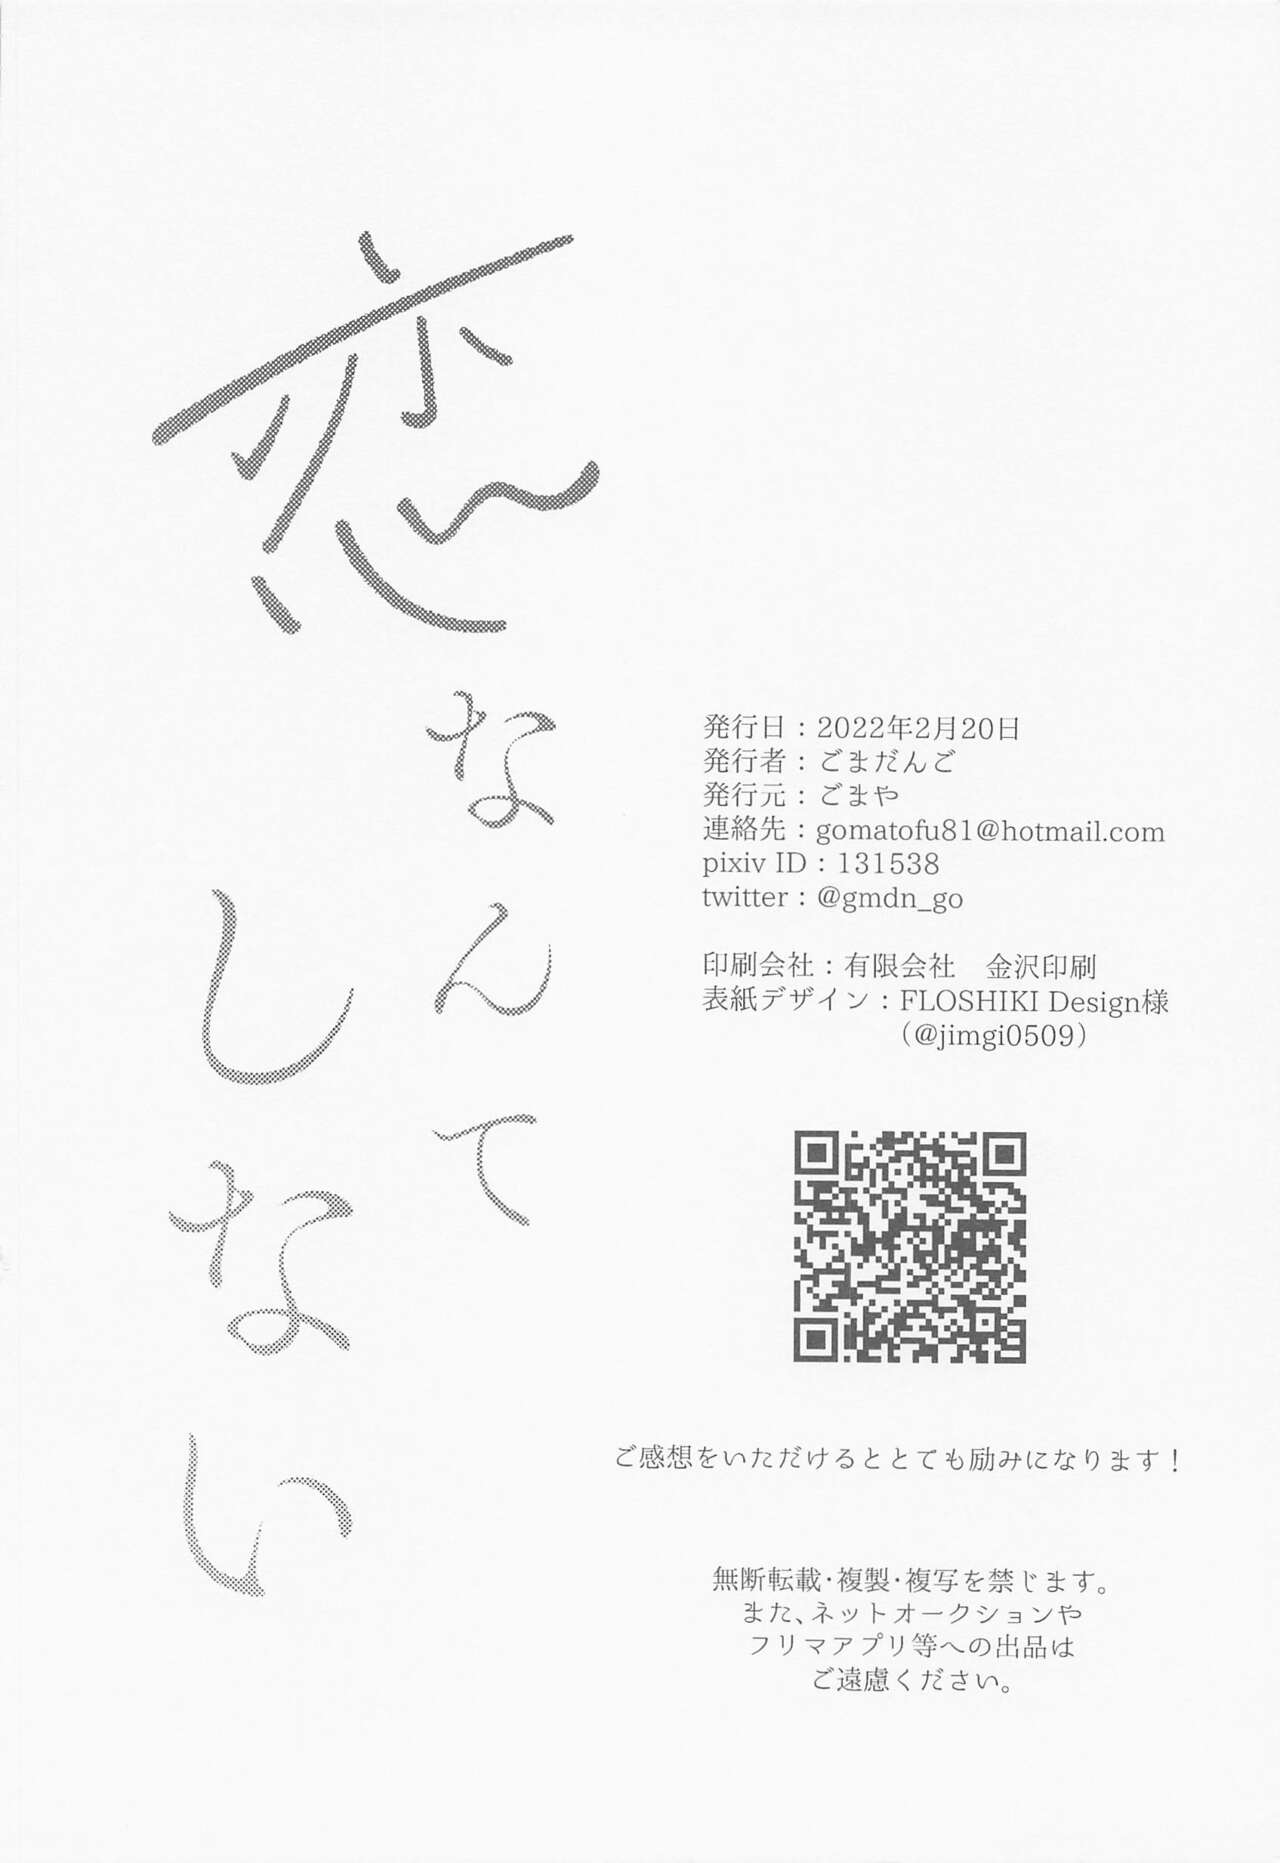 恋なんて
しない
発行日：2022年2月20日
発行者：ごまだんご
発行元：ごまや
連絡先：gomatofu81@hotmail.com
pixiv ID：131538
twitter：@gmdn_go
印刷会社：有限会社　金沢印刷
表紙デザイン：FLOSHIKI Design様
（@jimgi0509）
ご感想をいただけるととても励みになります！
無断転載・複製・複写を禁じます。
また、ネットオークションや
フリマアプリ等への出品は
ご遠慮ください。